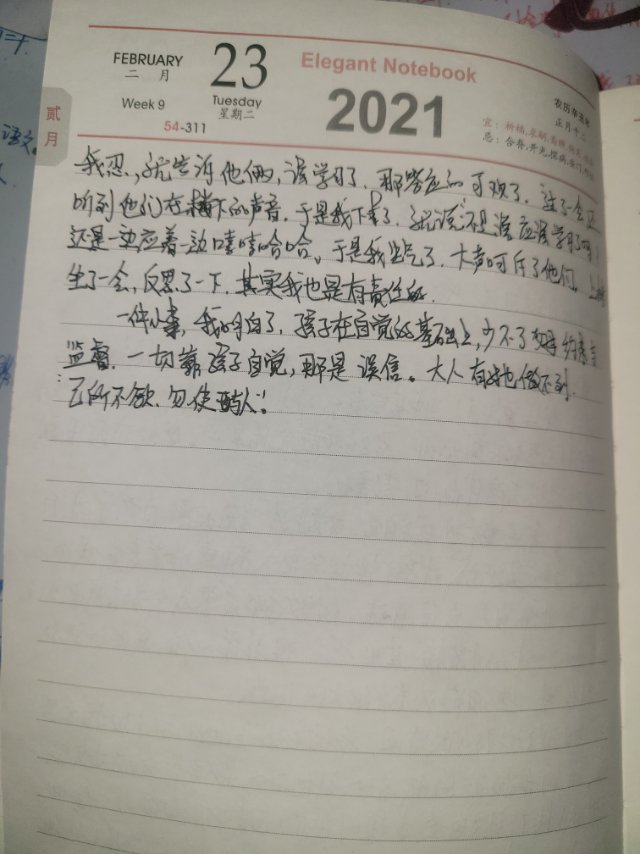 FEBRUARY
二 月
23
Elegant Notebook
Week 9
Tuesday
星期二
2021
农历辛丑年
正月十二
54-311
宜：祈福
忌：
贰月
语文
我忍，就告诉他俩，该学习了，那答应的可欢了，过了一会还
听到他们在楼下的声音，于是我下来了，就说不是该应该学习了吗！
还是一边应着一边嘻嘻哈哈。于是我生气了，大声呵斥了他们。
坐了一会，反思了一下，其实我也是有责任的。
一件小事，我明白了，孩子在自觉的基础上，少不了 约束
监督，一切靠孩子自觉，那是误信。大人有时也做不到，
己所不欲，勿使 人！